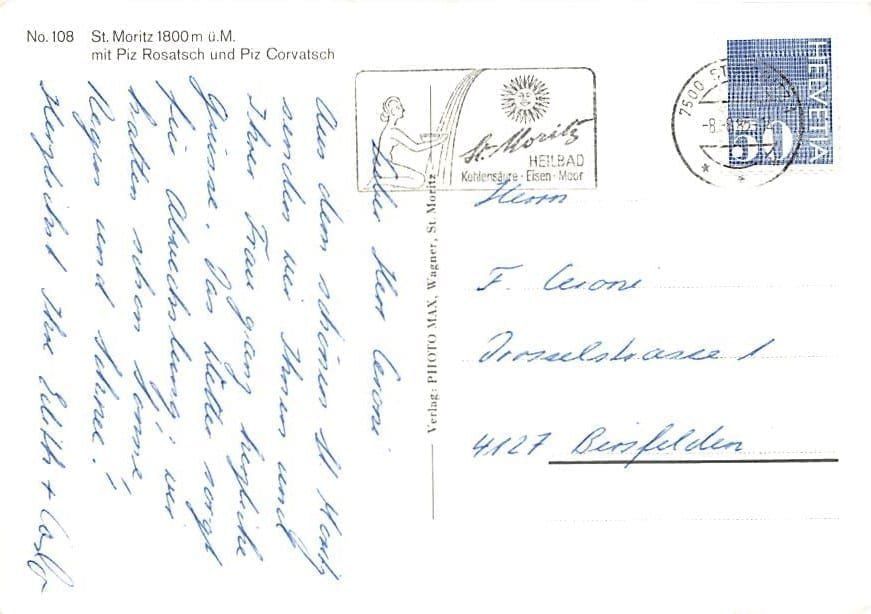 No. 108 St. Moritz 1800 m ü.M.
mit Piz Rosatsch und Piz Corvatsch
St. Moritz
HEILBAD
Kohlensäure · Eisen · Moor
7500 ST.
HELVETIA
50
Lieber Herr Ceroni
Aus dem schönen St. Moritz
senden wir Ihnen und
Ihrer Frau ganz herzliche
Grüsse. Das Wetter sorgt
für Abwechslung; wir
hatten schon Sonne,
Regen und Schnee!
Herzlichst Ihre Edith +
Verlag: PHOTO MAX, Wagner, St. Moritz
Herrn
F. Ceroni
Drosselstrasse 1
4127 Birsfelden